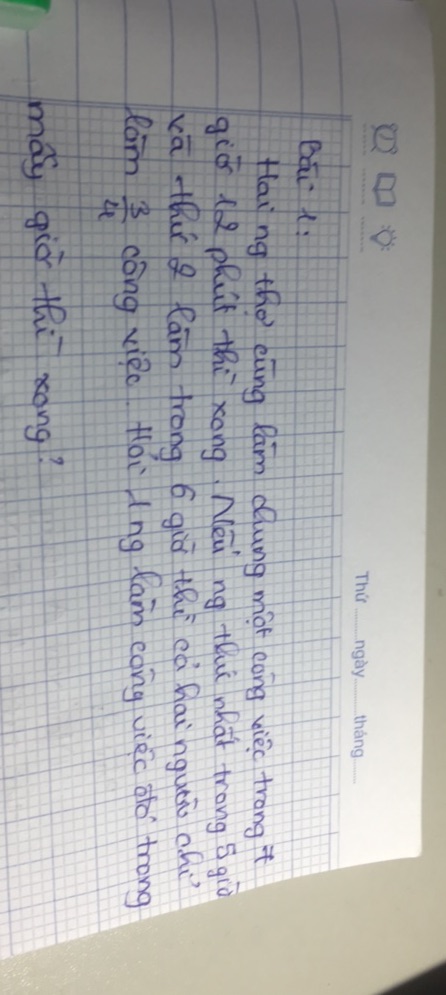 Thứ ........ ngày ........ tháng ........
Bài 1:
Hai ng thợ cùng làm chung một công việc trong 7
giờ 12 phút thì xong. Nếu ng thứ nhất trong 5 giờ
và thứ 2 làm trong 6 giờ thì cả hai người chỉ
làm 3/4 công việc. Hỏi 1 ng làm công việc đó trong
mấy giờ thì xong?